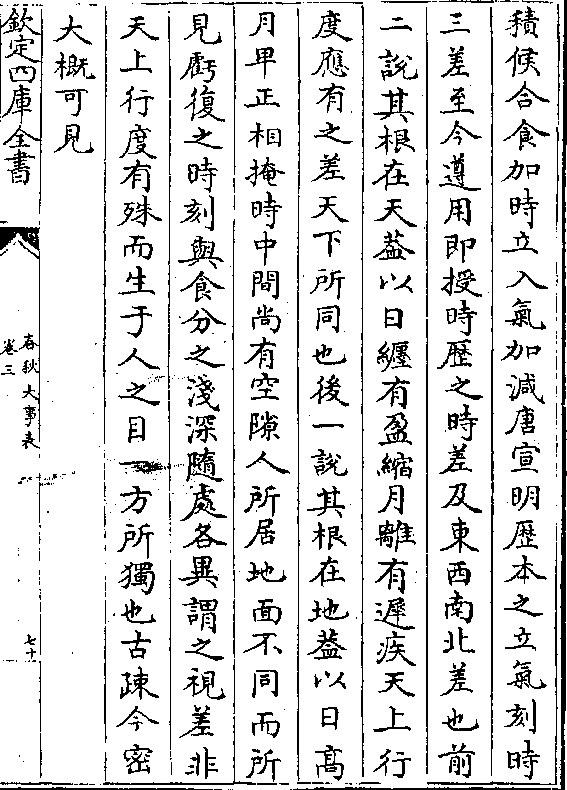 積候合食加時立入氣加減唐宣明歴本之立氣刻時
三差至今遵用即授時歴之時差及東西南北差也前
二說其根在天葢以日纒有盈縮月離有遲疾天上行
度應有之差天下所同也後一說其根在地葢以日髙
月卑正相掩時中間尚有空隙人所居地面不同而所
見虧復之時刻與食分之淺深隨處各異謂之視差非
天上行度有殊而生于人之目一方所獨也古疎今密
大概可見
欽定四庫全書
春秋大事表
卷三
七十